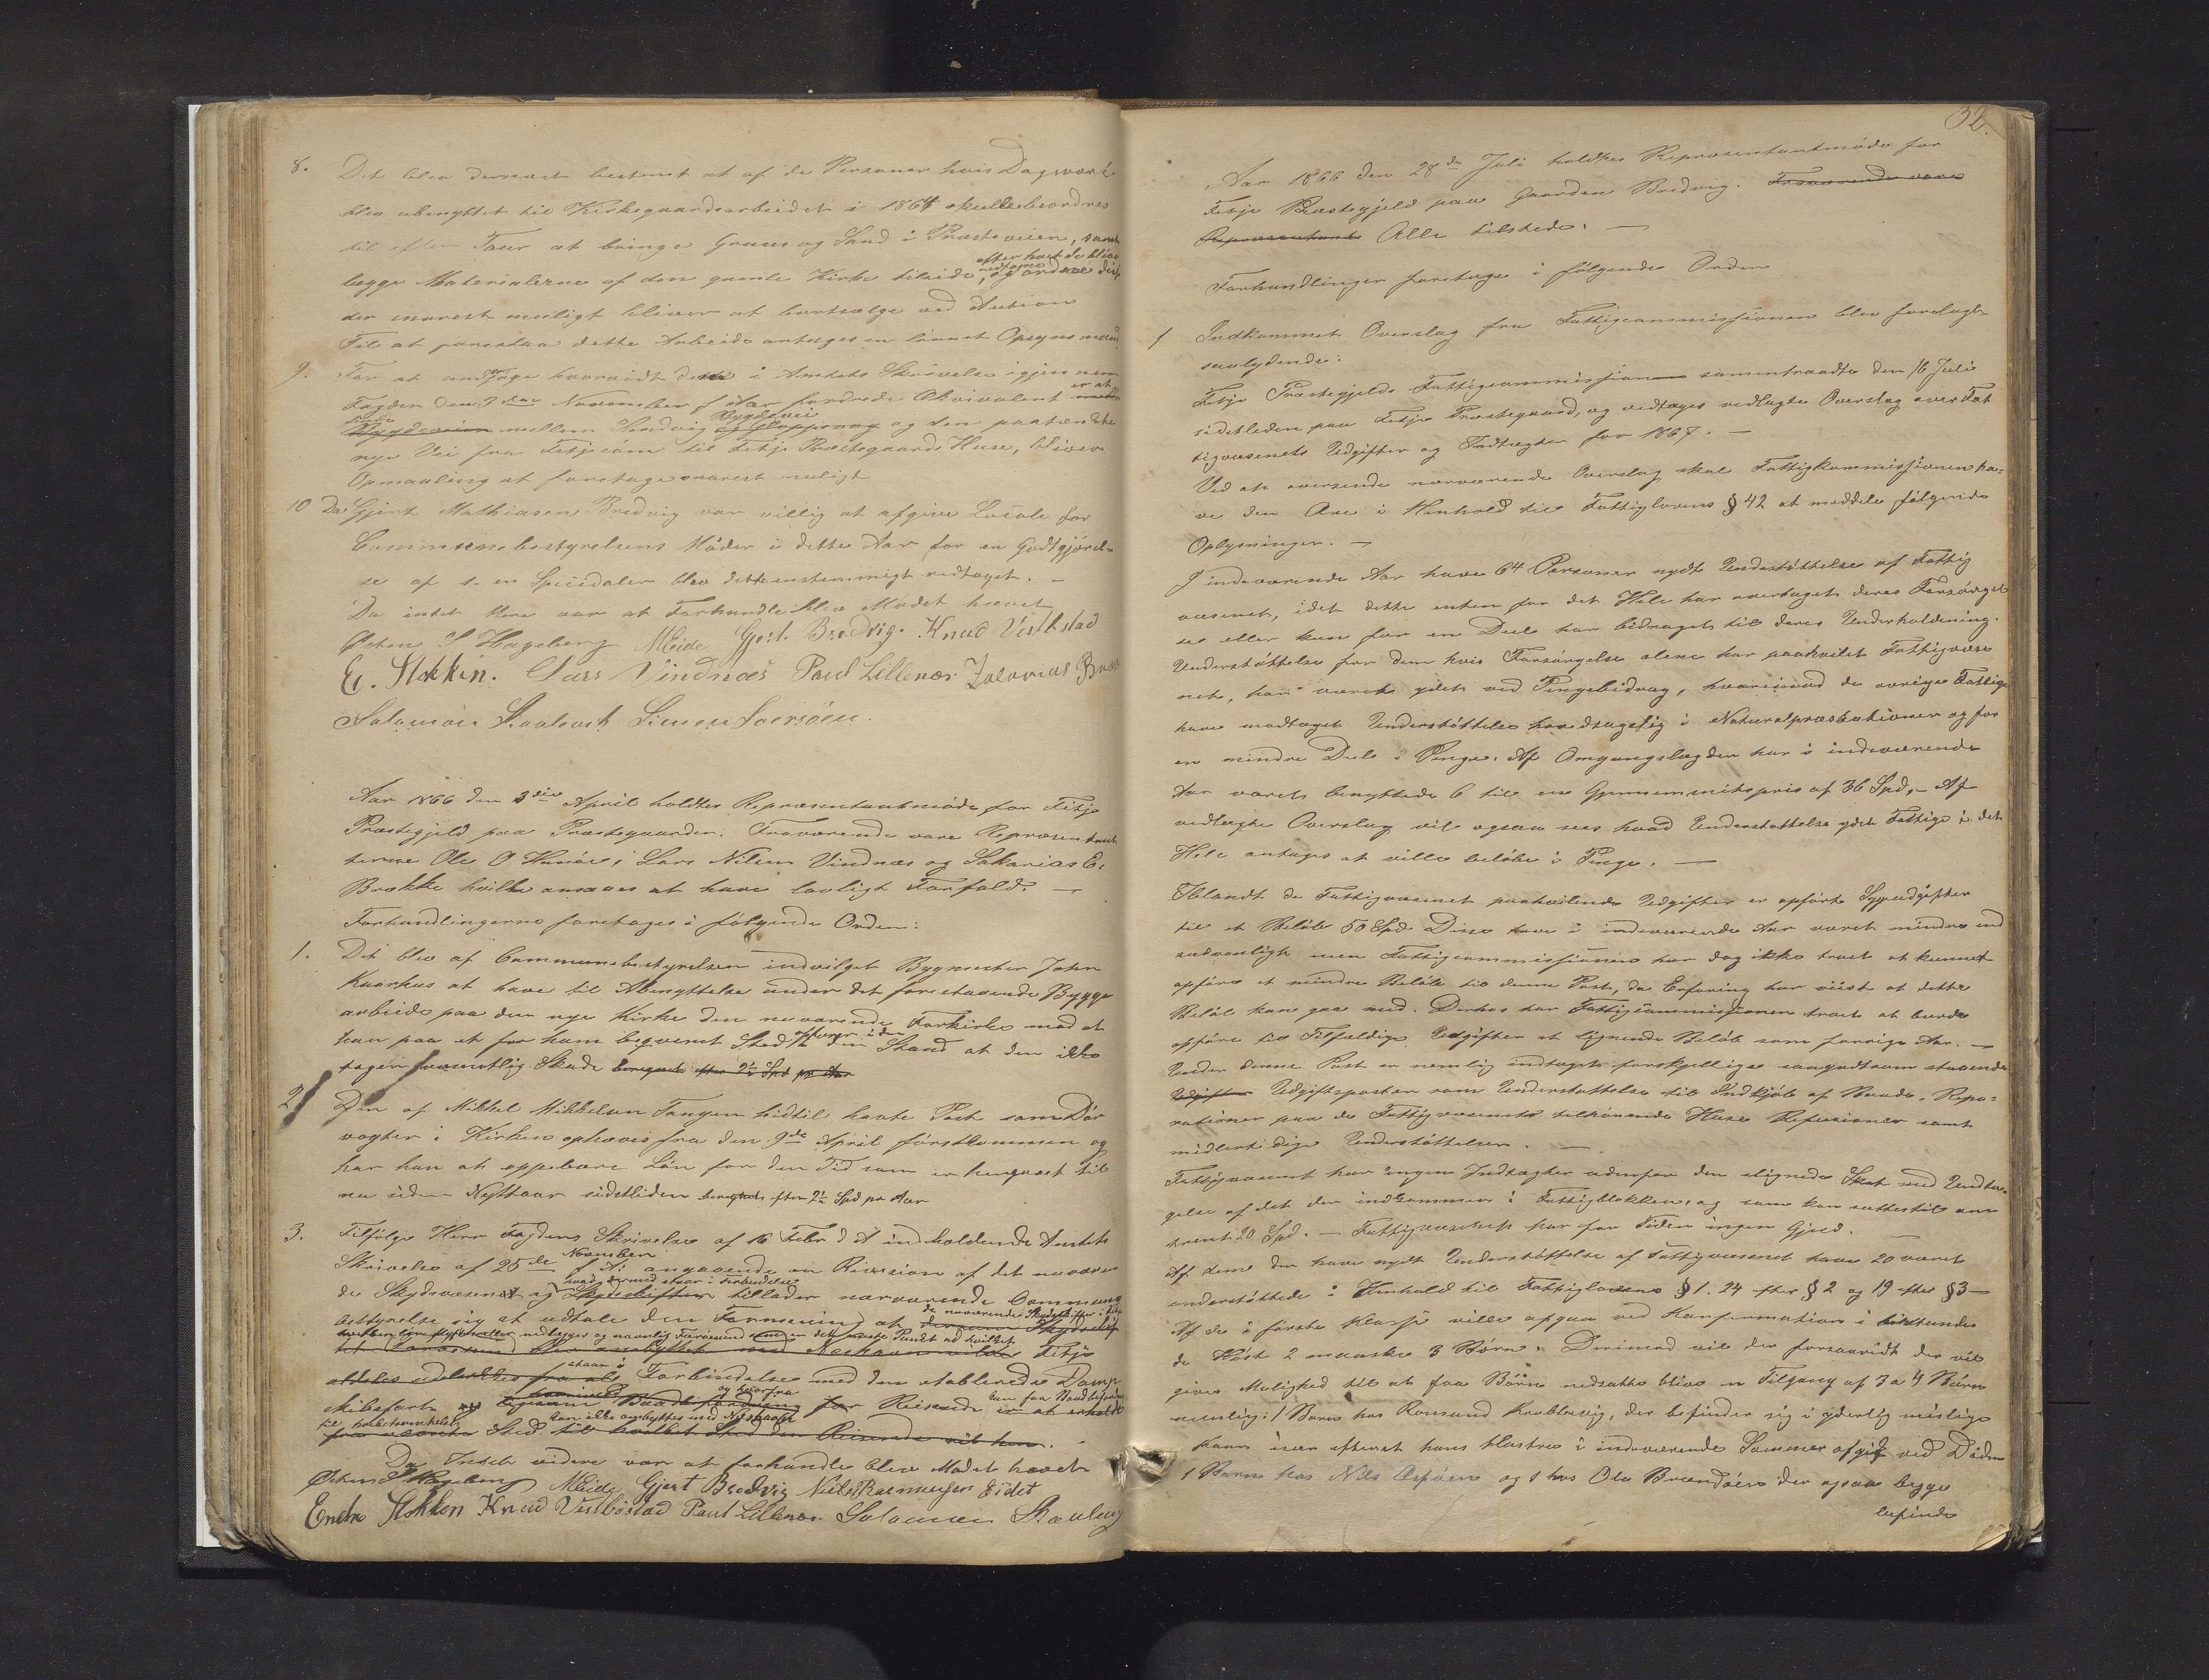 8. Det blev dernæst bestemt at af de Personer hvis Dagværk
blev ubenyttet til Kirkegaardsarbeidet i 1864 skulle beordres
til efter Tour at bringe Gruus og Sand i Præsteveien, samt
lægge Materialerne af den gamle Kirke tilside, efter hvert de blive nedtagne, og ordne
der snarest muligt bliver at bortsælge ved Auction
Til at forestaa dette Arbeide antages en lønnet Opsynsmand
9. For at hvorvidt dette i Amtets Skrivelse igjennem
Fogden den 7de November f Aar fordrede Ækvivalent er at
mellem Sandvig Bygdevei og den paatænkte
nye Vei fra Fitjeøen til Fitje Præstegaards Huse, bliver
Opmaaling at foretage snarest muligt
10 Da Gjert Mathiasen Bredvig var villig at afgive Locale for
Communebestyrelsens Møder i dette Aar for en Godtgjørel-
se af 1- en Speciedaler blev dette enstemmigt vedtaget. –
Da intet flere var at Forhandle blev Mødet hævet
Østen S Hageberg MEide Gjert. Bredvig. Knud Vestbstad
E. Stokken. Lars Vindnæs Paul Lillenes Zakarias Bræk
Salamon Simon
Aar 1866 den 3die April holdtes Repræsentantmøde for Fitje
Præstegjeld paa Præstegaarden. Fraværende vare Repræsentan
terne Ole O , Lars Nilsen Vindnæs og Sakarias E.
Brække hvilke ansaaes at have lovligt Forfald. –
Forhandlingerne foretages i følgende Orden:
1. Det blev af Communebestyrelsen indvilget Bygmester John
Kaarhus at have til Afbenyttelse under det forestaaende Bygge
arbeide paa den nye Kirke den nuværende Forkirke mod at
han paa et for ham beqvemt Sted opfører i den Stand at den ikke
tager væsentlig Skade beregnet efter 2½ Spd pr Aar
2 Den af Mikkel Mikkelsen Tangen hidtil havte Post som Dør
vogter i Kirken ophæves fra den 9de April førstkommen og
har han at oppebære Løn for den Tid som er hengaaet til
nu siden Nyttaar sidstleden beregnet efter 2½ Spd pr Aar
3. Ifølge Herr Fogdens Skrivelse af 16 Febr d A indholdende Amtets
Skrivelse af 25de November f A. angaaende en Revision af det nuværen
de Skydsvæsenet og hvad dermed staar i Forbindelse tillader nærværende Commune
bestyrelse sig at udtale den Formening at de nuværende Skydsskifter i Fitje
nedlægges og navnlig Færøsund som er den neste Punct ved hvilket
Fitje
staar i Forbindelse med den etablerede Damp
skibsfart og hvorfra Reisende kan faa
Sted kan ikke ombyttes med Neshavn
Da Intet videre var at forhandle blev Mødet hævet
Østen S Hageberg MEide Gjert Bredvig Niels Rasmussen Eidet
Endre Stokken Knud Vestbøstad Paul Lillenes Salamon
32.
Aar 1866 den 28de Juli holdtes Repræsentantmøde for
Fitje Præstegjeld paa Gaarden Bredvig. Fraværende vare
Repræsentant Alle tilstede. –
Forhandlinger foretages i følgende Orden
1 Indkommet Overslag fra Fattigcommissionen blev forelagt
saalydende:
Fitje Præstegjelds Fattigcommission samentraadte den 16 Juli
sidstleden paa Fitje Præstegaard, og vedtoges vedlagte Overslag over Fat
tigvæsenets Udgifter og Indtægter for 1867. –
Ved at oversende nærværende Overslag skal Fattigkommissionen ha-
ve den Ære i Henhold til Fattiglovens § 42 at meddele følgende
Oplysninger. –
I indeværende Aar have 64 Personer nydt Understøttelse af Fattig
væsenet, idet dette enten for det Hele har overtaget deres Forsørgel
se eller kun for en Deel har bidraget til deres Underholdning.
Understøttelse for dem hvis Forsørgelse alene har paahvilet Fattigvæse
net, har været ydet ved Pengebidrag, hvorimod de øvrige Fattige
have modtaget Understøttelse hovedsagelig i Naturalpræstationer og for
en mindre Deel i Penge. Af Omgangslægden har i indeværende
Aar været benyttede 6 til en Gjennemsnitspris af 36 Spd. – Af
vedlagte Overslag vil ogsaa sees hvad Understøttelse ydet Fattige i det
Hele antages at ville beløbe i Penge. –
Iblandt de Fattigvæsenet paahvilende Udgifter er opført Sygeudgifter
til et Beløb 50 Spd. Disse have i indeværende Aar været mindre end
sædvanligt men Fattigcommissionen har dog ikke troet at kunne
opføre et mindre Beløb til denne Post, da Erfaring har viist at dette
Beløb kan gaa med. Derhos har Fattigcommissionen troet at burde
opføre til Tilfældige Udgifter et lignende Beløb som forrige Aar. –
Under denne Post er nemlig indtaget forskjellige saagodtsom staaende
Udgifter Udgiftsposter som Understøttelse til Indkjøb af Baade, Repa-
rationer paa de Fattigvæsenet tilhørende Huse Refusioner samt
midlertidige Understøttelser. –
Fattigvæsenet har ingen Indtægter udenfor den lignede Skat med Undta-
gelse af det der indkommer i Fattigblokken, og som kan sættes til om
trent 20 Spd. – Fattigvæsenet har for Tiden ingen Gjeld.
Af dem der have nydt Understøttelse af Fattigvæsenet have 20 været
understøttede i Henhold til Fattiglovens § 1. 24 efter § 2 og 19 efter § 3 –
Af de i første Klasse ville afgaa ved Konfirmation i tilstunden
de Høst 2 maaske 3 Børn. Derimod vil der forsaavidt der vil
gives Mulighed til at faa Børn nedsatte blive en Tilgang af 3 a 4 Børn
nemlig: 1 Barn hos Rønsund Krabbevig, der befinder sig i yderlig mislige
Kaar især efterat hans Hustru i indeværende Sommer afgik ved Døden
1 Barn hos Nils Aspøen og 1 hos Ole Brandøen der ogsaa begge
befinde